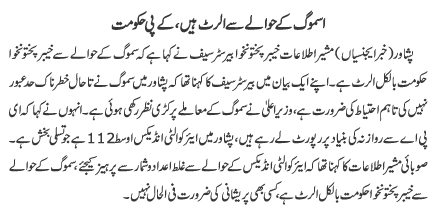 اسموگ کے حوالے سے الرٹ ہیں، کے پی حکومت
پشاور (خبر ایجنسیاں) مشیر اطلاعات خیبر پختونخوا بیرسٹر سیف نے کہا ہے کہ سموگ کے حوالے سے خیبر پختونخوا
حکومت بالکل الرٹ ہے۔ اپنے ایک بیان میں بیرسٹر سیف کا کہنا تھا کہ پشاور میں سموگ نے تاحال خطرناک حد عبور
نہیں کی تاہم احتیاط کی ضرورت ہے، وزیراعلیٰ نے سموگ کے معاملے پر کڑی نظر رکھی ہوئی ہے۔ انہوں نے کہا کہ ای
پی اے سے روزانہ کی بنیاد پر رپورٹ لے رہے ہیں، پشاور میں ایئر کوالٹی انڈیکس اوسط 112 ہے جو تسلی بخش ہے۔
صوبائی مشیر اطلاعات کا کہنا تھا کہ ایئر کوالٹی انڈیکس کے حوالے سے غلط اعداد و شمار سے پرہیز کیجئے، سموگ کے حوالے
سے خیبر پختونخوا حکومت بالکل الرٹ ہے، کسی بھی پریشانی کی ضرورت فی الحال نہیں۔